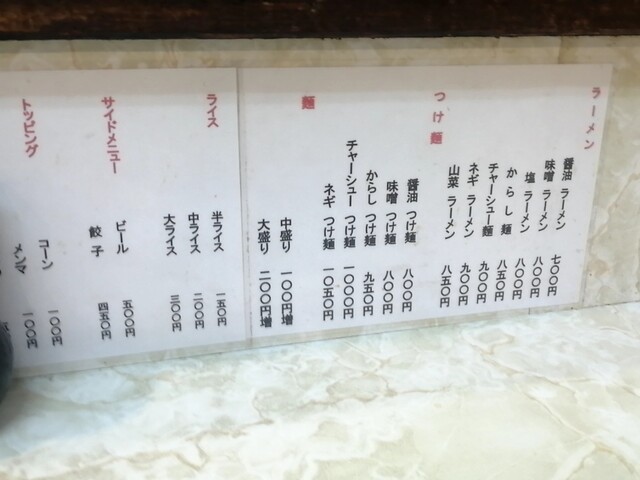 ラーメン
醤油 ラーメン 七〇〇円
味噌 ラーメン 八〇〇円
塩 ラーメン 八〇〇円
からし 麺 八五〇円
チャーシュー麺 九〇〇円
ネギ ラーメン 九〇〇円
山菜 ラーメン 八五〇円
つけ麺
醤油 つけ麺 八〇〇円
味噌 つけ麺 八〇〇円
からし つけ麺 九五〇円
チャーシュー つけ麺 一〇〇〇円
ネギ つけ麺 一〇五〇円
麺
中盛り 一〇〇円増
大盛り 二〇〇円増
ライス
半ライス 一五〇円
中ライス 二〇〇円
大ライス 三〇〇円
サイドメニュー
ビール 五〇〇円
餃子 四五〇円
トッピング
コーン 一〇〇円
メンマ 一〇〇円